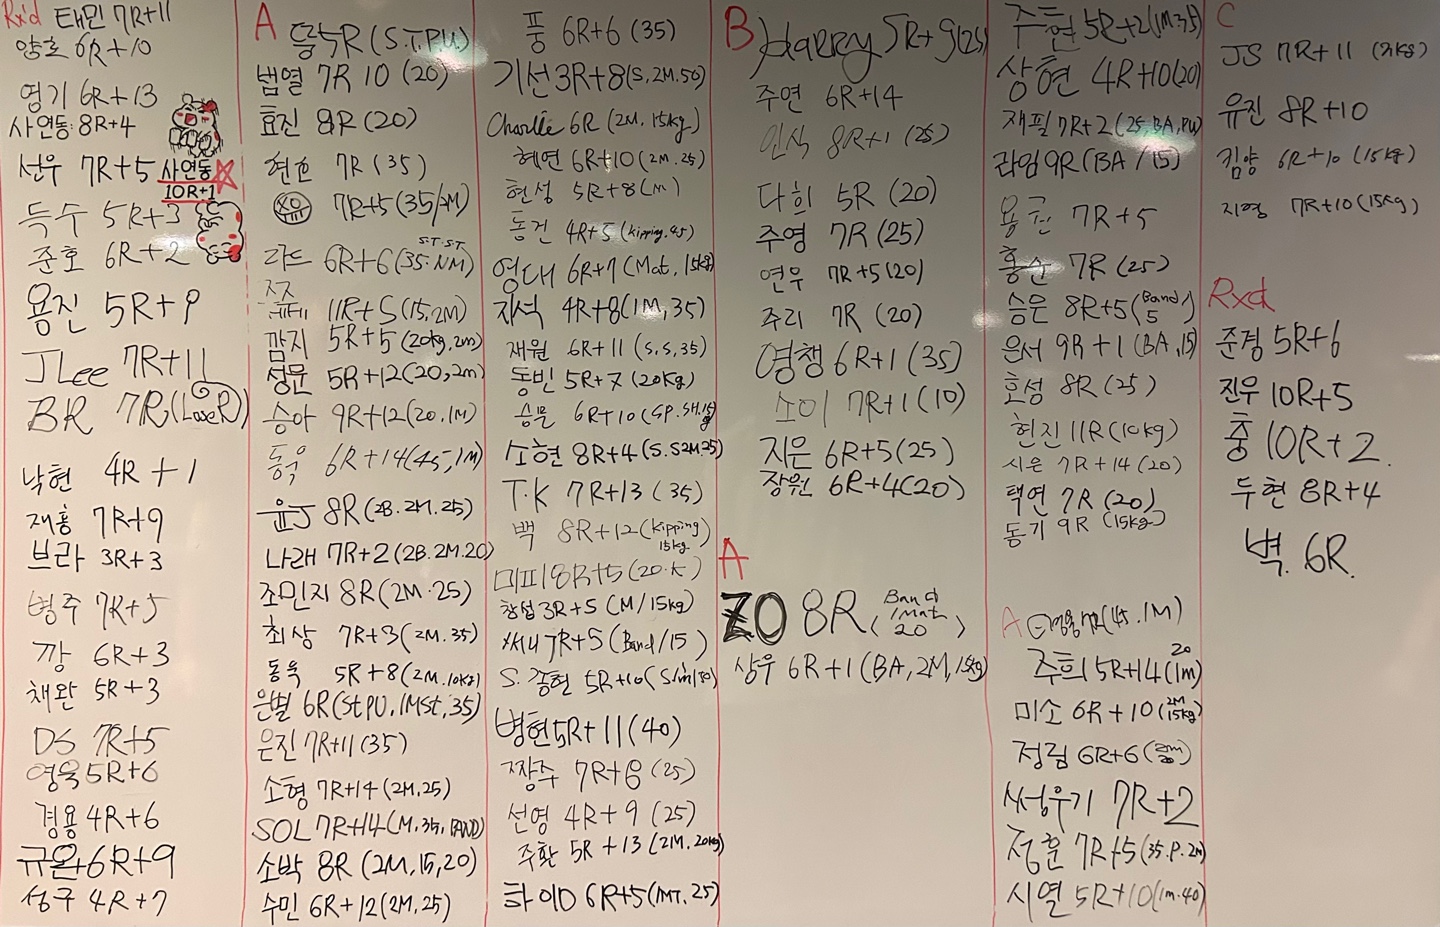 Rx'd 태민 7R+11
양호 6R+10
영기 6R+13
사연동 8R+4
선우 7R+5 사연동
10R+1
득수 5R+3
준호 6R+2
용진 5R+9
JLee 7R+11
BR 7R (LoseR)
낙현 4R+1
재홍 7R+9
브라 3R+3
병주 7R+5
깡 6R+3
채완 5R+3
DS 7R+5
영욱 5R+6
경용 4R+6
규완 6R+9
성구 4R+7
A
5R (S.T.P.U.)
법열 7R 10 (20)
효진 8R (20)
현호 7R (35)
7R+5 (35/2M)
라드 6R+6 (35.NM)
S.T.S.T
11R+5 (15.2M)
깜지 5R+5 (20kg, 2m)
성문 5R+12 (20, 2m)
승아 9R+12 (20.1M)
동욱 6R+14 (45, 1M)
윤J 8R (2B.2M.25)
나래 7R+2 (2B.2M.20)
조민지 8R (2M.25)
최상 7R+3 (2M.35)
동욱 5R+8 (2M.10kg)
은별 6R (StPU, 1MSt, 35)
은진 7R+11 (35)
소형 7R+14 (2M.25)
SOL 7R+14 (M.35, BAND)
소박 8R (2M, 15, 20)
수민 6R+12 (2M, 25)
풍 6R+6 (35)
기선 3R+8 (S, 2M.50)
Charlie 6R (2M, 15kg)
혜연 6R+10 (2M.25)
현성 5R+8 (M)
동건 4R+5 (kipping.45)
영대 6R+7 (Mat, 15kg)
지석 4R+8 (1M, 35)
재원 6R+11 (S.S, 35)
동빈 5R+7 (20kg)
승문 6R+10 (SP.SH.15kg)
소현 8R+4 (S.S2M.25)
T.K 7R+13 (35)
백 8R+12 (kipping 15kg)
미피 8R+5 (20.K)
창섭 3R+5 (M/15kg)
써니 7R+5 (Band/15)
S. 종현 5R+10
병현 5R+11 (40)
짱주 7R+8 (25)
선영 4R+9 (25)
주환 5R+13 (2M.20kg)
하이 6R+5 (1MT.25)
B
Harry 5R+9 (25)
주연 6R+14
인식 8R+1 (25)
다희 5R (20)
주영 7R (25)
연우 7R+5 (20)
주리 7R (20)
영챙 6R+1 (35)
소이 7R+1 (10)
지은 6R+5 (25)
장원 6R+4 (20)
A
ZO 8R (Band
1Mat
20)
상우 6R+1 (BA, 2M, 15kg)
주현 5R+2 (1M.35)
상현 4R+10 (20)
재필 7R+2 (25, BA, PU)
라임 9R (BA/15)
용권 7R+5
홍순 7R (25)
승은 8R+5 (Band 5)
은서 9R+1 (BA, 15)
효성 8R (25)
현진 11R (10kg)
시은 7R+14 (20)
택연 7R (20)
동기 9R (15kg)
A
7R (45.1M)
주희 5R+14 (20 1m)
미소 6R+10 (2M 15kg)
정림 6R+6
써우기 7R+2
정훈 7R+5 (35.P.2M)
시열 5R+10 (1m.40)
C
JS 7R+11
유진 8R+10
킴양 6R+10 (15kg)
지영 7R+10 (15kg)
Rxd
준경 5R+6
진우 10R+5
충 10R+2
두현 8R+4
벽. 6R.